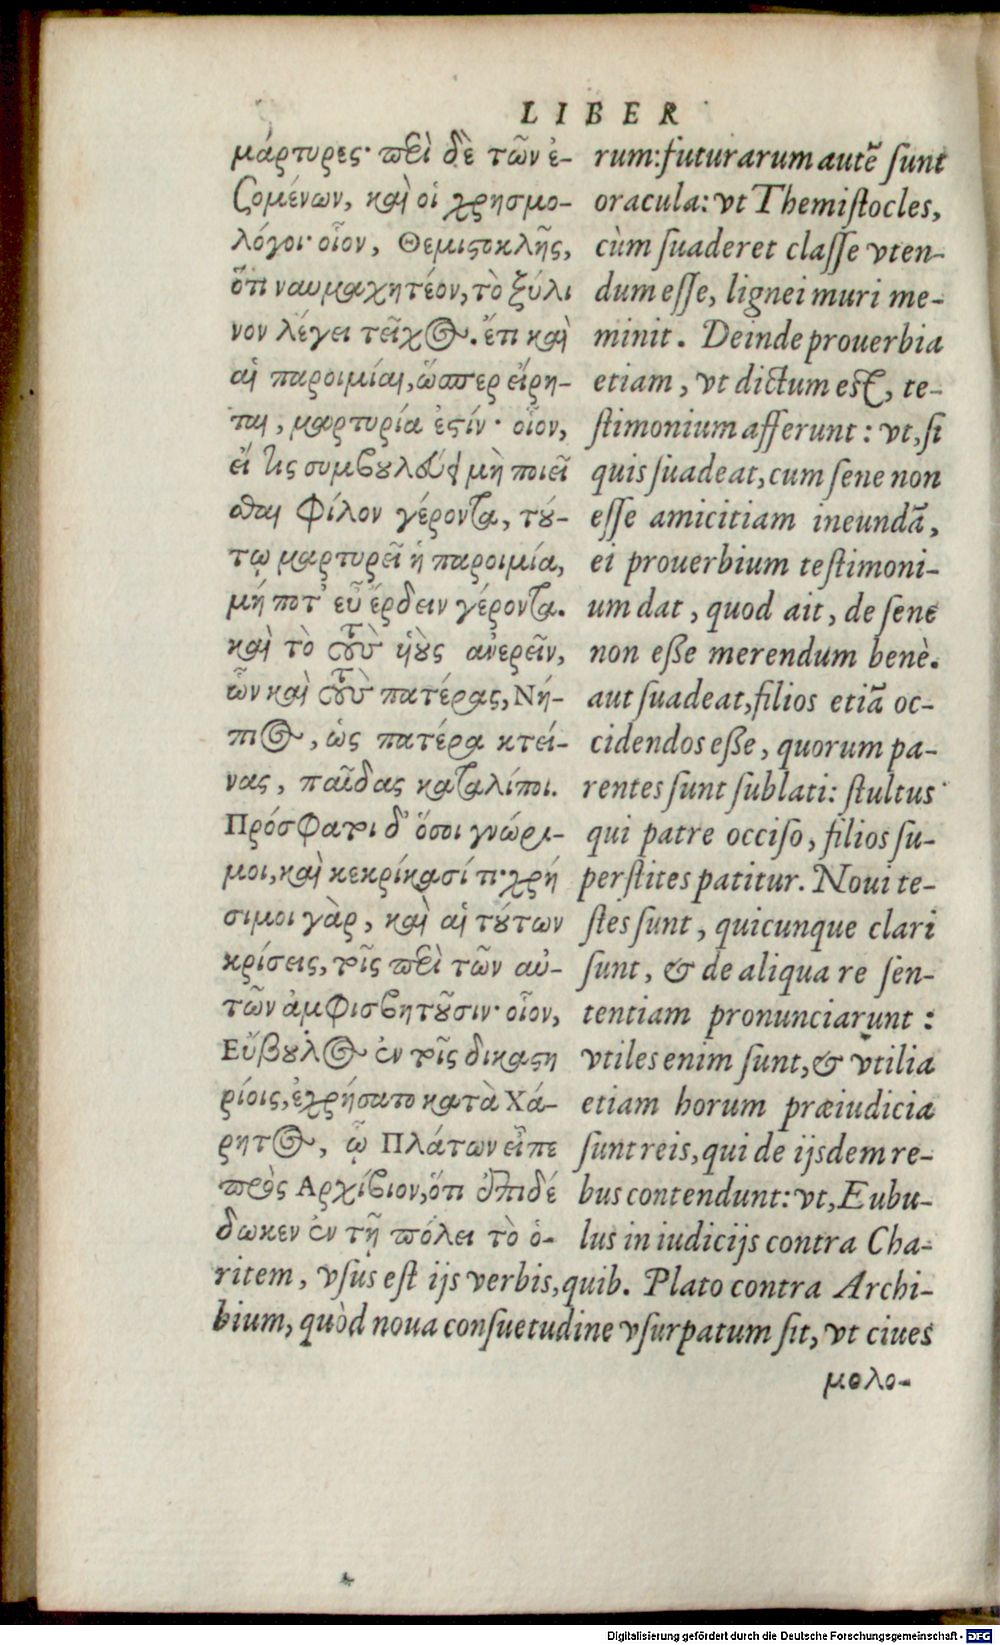 LIBER
μάρτυρες· περὶ δὲ τῶν ἐ-
ζομένων, καὶ οἱ χρησμο-
λόγοι· οἷον, Θεμιστοκλῆς,
ὅτι ναυμαχητέον, τὸ ξύλι
νον λέγει τεῖχος. ἔτι καὶ
αἱ παροιμίαι, ὥσπερ εἴρη-
ται, μαρτυρία ἐστίν· οἷον,
εἴ τις συμβουλεύει μὴ ποιεῖ
σθαι φίλον γέροντα, τού-
τῳ μαρτυρεῖ ἡ παροιμία,
μή ποτ' εὖ ἔρδειν γέροντα.
καὶ τὸ τοὺς υἱοὺς ἀνερεῖν,
ὧν καὶ τοὺς πατέρας, Νή-
πιος, ὡς πατέρα κτεί-
νας, παῖδας καταλίποι.
Πρόσφατοι δ' ὅσοι γνώρι-
μοι, καὶ κεκρίκασί τι· χρή
σιμοι γὰρ, καὶ αἱ τούτων
κρίσεις, τοῖς περὶ τῶν αὐ-
τῶν ἀμφισβητοῦσιν· οἷον,
Εὔβουλος ἐν τοῖς δικαστη
ρίοις, ἐχρήσατο κατὰ Χά-
ρητος, ᾧ Πλάτων εἶπε
πρὸς Αρχίβιον, ὅτι ἐπιδέ
δωκεν ἐν τῇ πόλει τὸ ὁ-
rum: futurarum autẽ sunt
oracula: vt Themistocles,
cùm suaderet classe vten-
dum esse, lignei muri me-
minit. Deinde prouerbia
etiam, vt dictum est, te-
stimonium afferunt: vt, si
quis suadeat, cum sene non
esse amicitiam ineundã,
ei prouerbium testimoni-
um dat, quod ait, de sene
non esse merendum benè.
aut suadeat, filios etiã oc-
cidendos esse, quorum pa-
rentes sunt sublati: stultus
qui patre occiso, filios su-
perstites patitur. Noui te-
stes sunt, quicunque clari
sunt, & de aliqua re sen-
tentiam pronunciarunt:
vtiles enim sunt, & vtilia
etiam horum præiudicia
sunt reis, qui de ijsdem re-
bus contendunt: vt, Eubu-
lus in iudicijs contra Cha-
ritem, vsus est ijs verbis, quib. Plato contra Archi-
bium, quòd noua consuetudine vsurpatum sit, vt ciues
μολο-
Digitalisierung gefördert durch die Deutsche Forschungsgemeinschaft - DFG